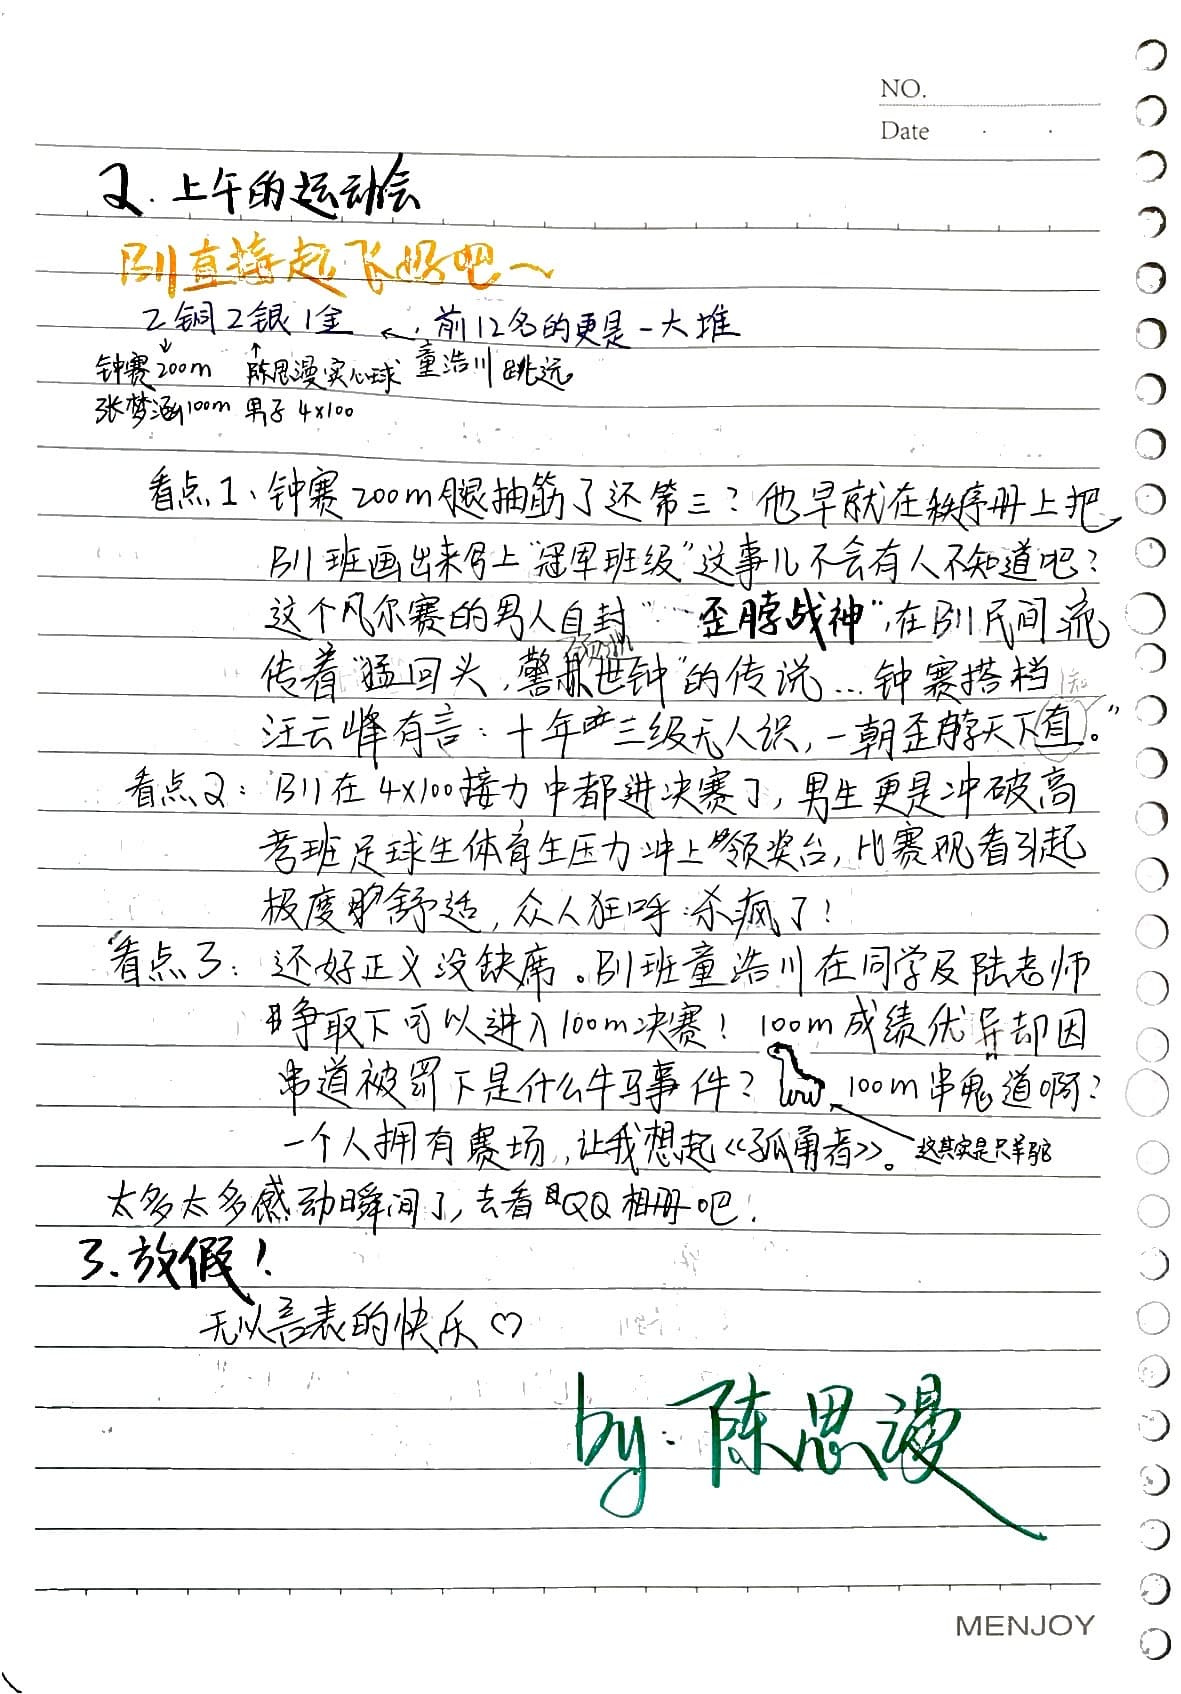 NO.
Date
2. 上午的运动会
B11直接起飞好吧~
2铜2银1金 ← 前12名的更是一大堆
钟赛200m 陈思漫实心球 童浩川 跳远
张梦涵100m 男子 4×100
看点1、钟赛200m腿抽筋了还第三？他早就在秩序册上把
B11班画出来写上“冠军班级”这事儿不会有人不知道吧？
这个凡尔赛的男人自封“歪脖战神”，在B11民间流
传着“猛回头，警世钟”的传说…钟赛搭档
汪云峰有言：十年三级无人识，一朝歪脖天下直。”
知
看点2：B11在4×100接力中都进决赛了，男生更是冲破高
考班足球生体育生压力冲上领奖台，比赛观看引起
极度舒适，众人狂呼：杀疯了！
看点3：还好正义没缺席。B11班童浩川在同学及陆老师
争取下可以进入100m决赛！100m成绩优异却因
串道被罚下是什么牛马事件？100m串鬼道啊？
一个人拥有赛场，让我想起《孤勇者》。这其实是只羊驼
太多太多感动瞬间了，去看QQ相册吧！
3、放假！
无以言表的快乐♡
by：陈思漫
MENJOY